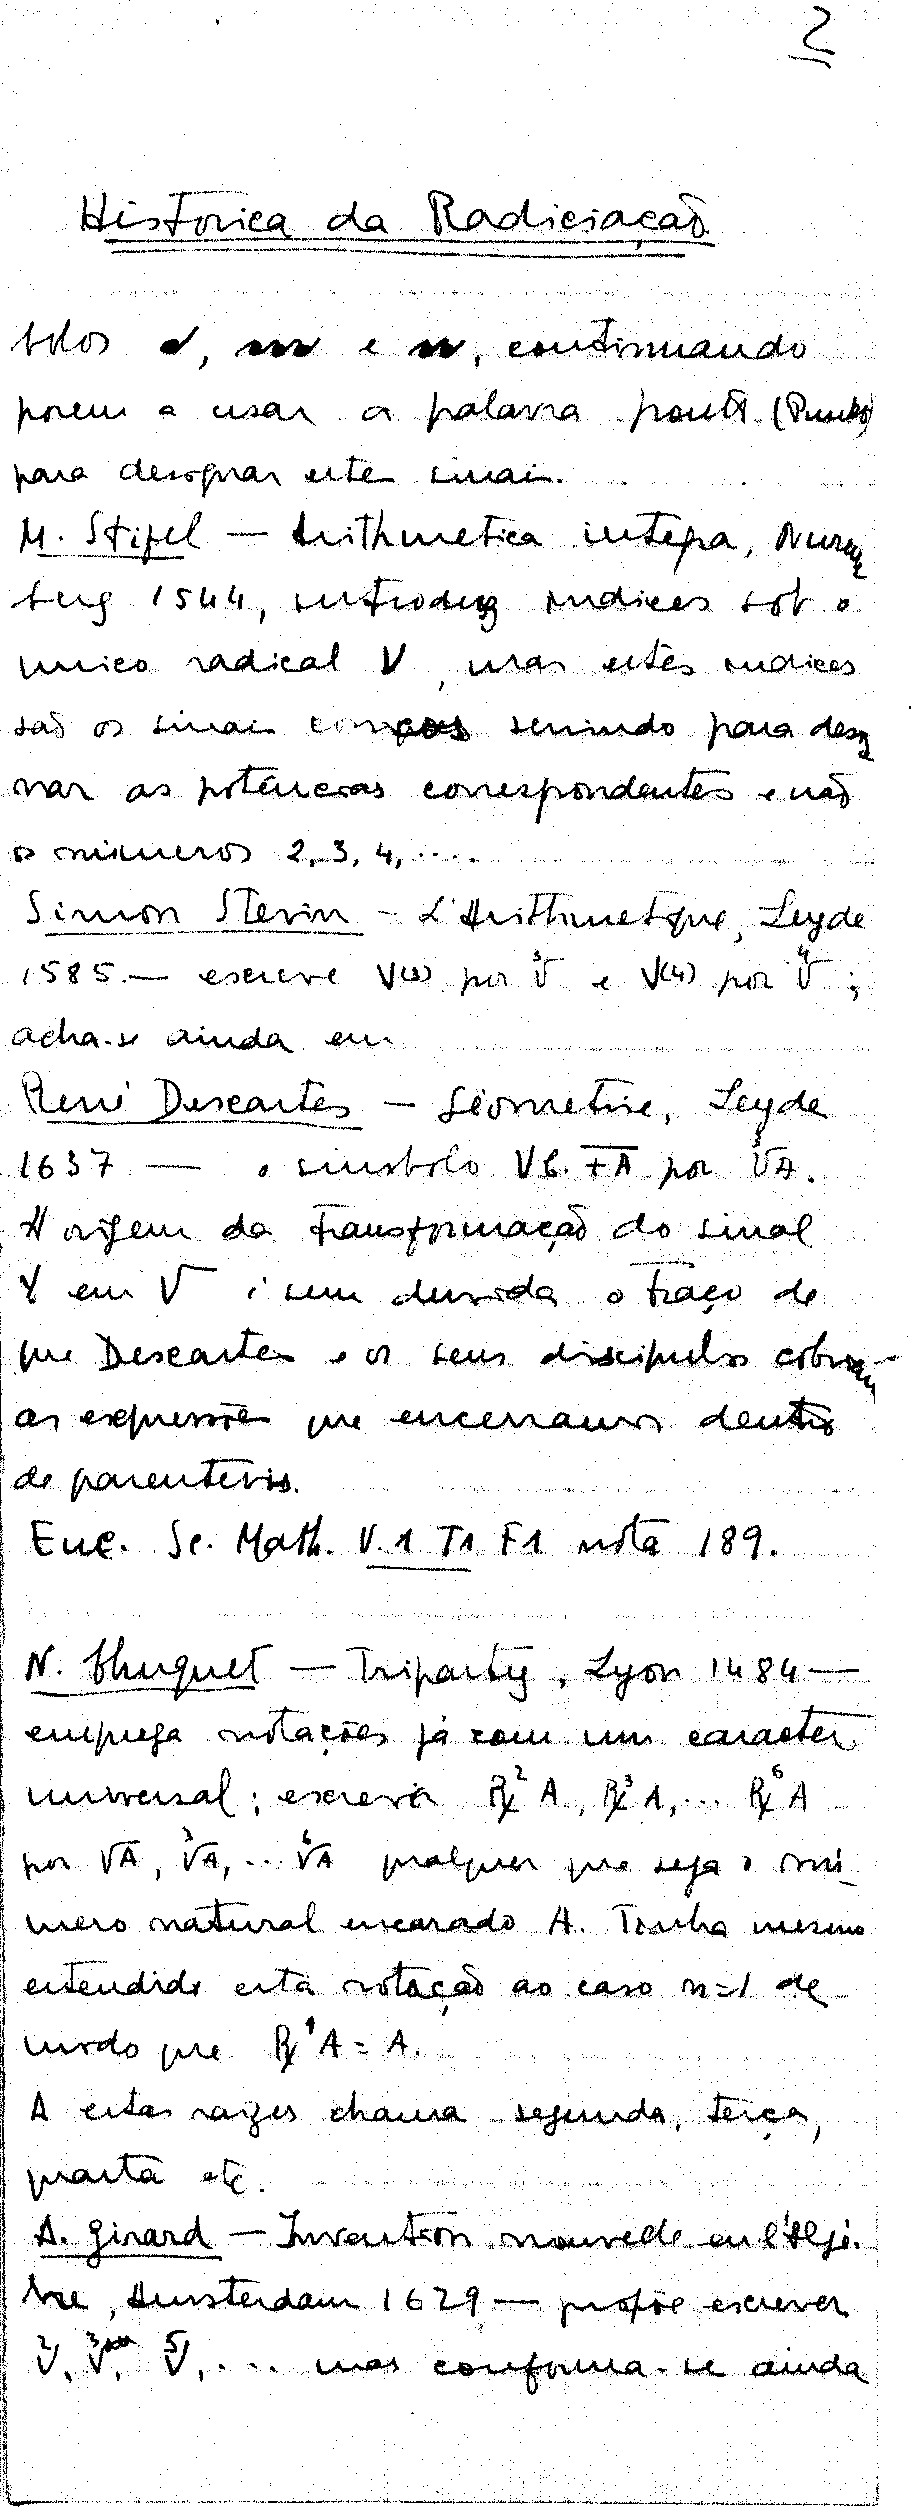 2
Historica da Radiciação
bolos √, m e n, continuando
porem a usar a palavra ponto (Punkt)
para designar estes sinais.
M. Stifel — Arithmetica integra, Nurem
berg 1544, introduz indices sob o
unico radical V, mas estes indices
são os sinais cossicos servindo para desig
nar as potências correspondentes e não
os números 2, 3, 4, ....
Simon Stevin - L'Arithmetique, Leyde
1585 — escreve V(3) por ∛ e V(4) por ∜ ;
acha-se ainda em
René Descartes — Géometrie, Leyde
1637 — o simbolo VC. +A por ∛A.
A origem da transformação do sinal
V em √ é sem duvida o traço de
que Descartes e os seus discipulos cobriam
as expressões que encerramos dentro
de parentesis.
Enc. Sc. Math. V.1 T1 F1 nota 189.
N. Chuquet — Triparty, Lyon 1484 —
emprega notações já com um caracter
universal; escrevia ℞²A, ℞³A, ... ℞⁶A
por √A, ∛A, ... ⁶√A qualquer que seja o nú
mero natural encarado A. Tinha mesmo
estendido esta notação ao caso n=1 de
modo que ℞¹A = A.
A estas raizes chama segunda, terça,
quarta etc.
A. Girard — Invention nouvelle en l'Algè.
bre, Amsterdam 1629 — propõe escrever
²√, ³√, ⁵√, ... mas conforma-se ainda